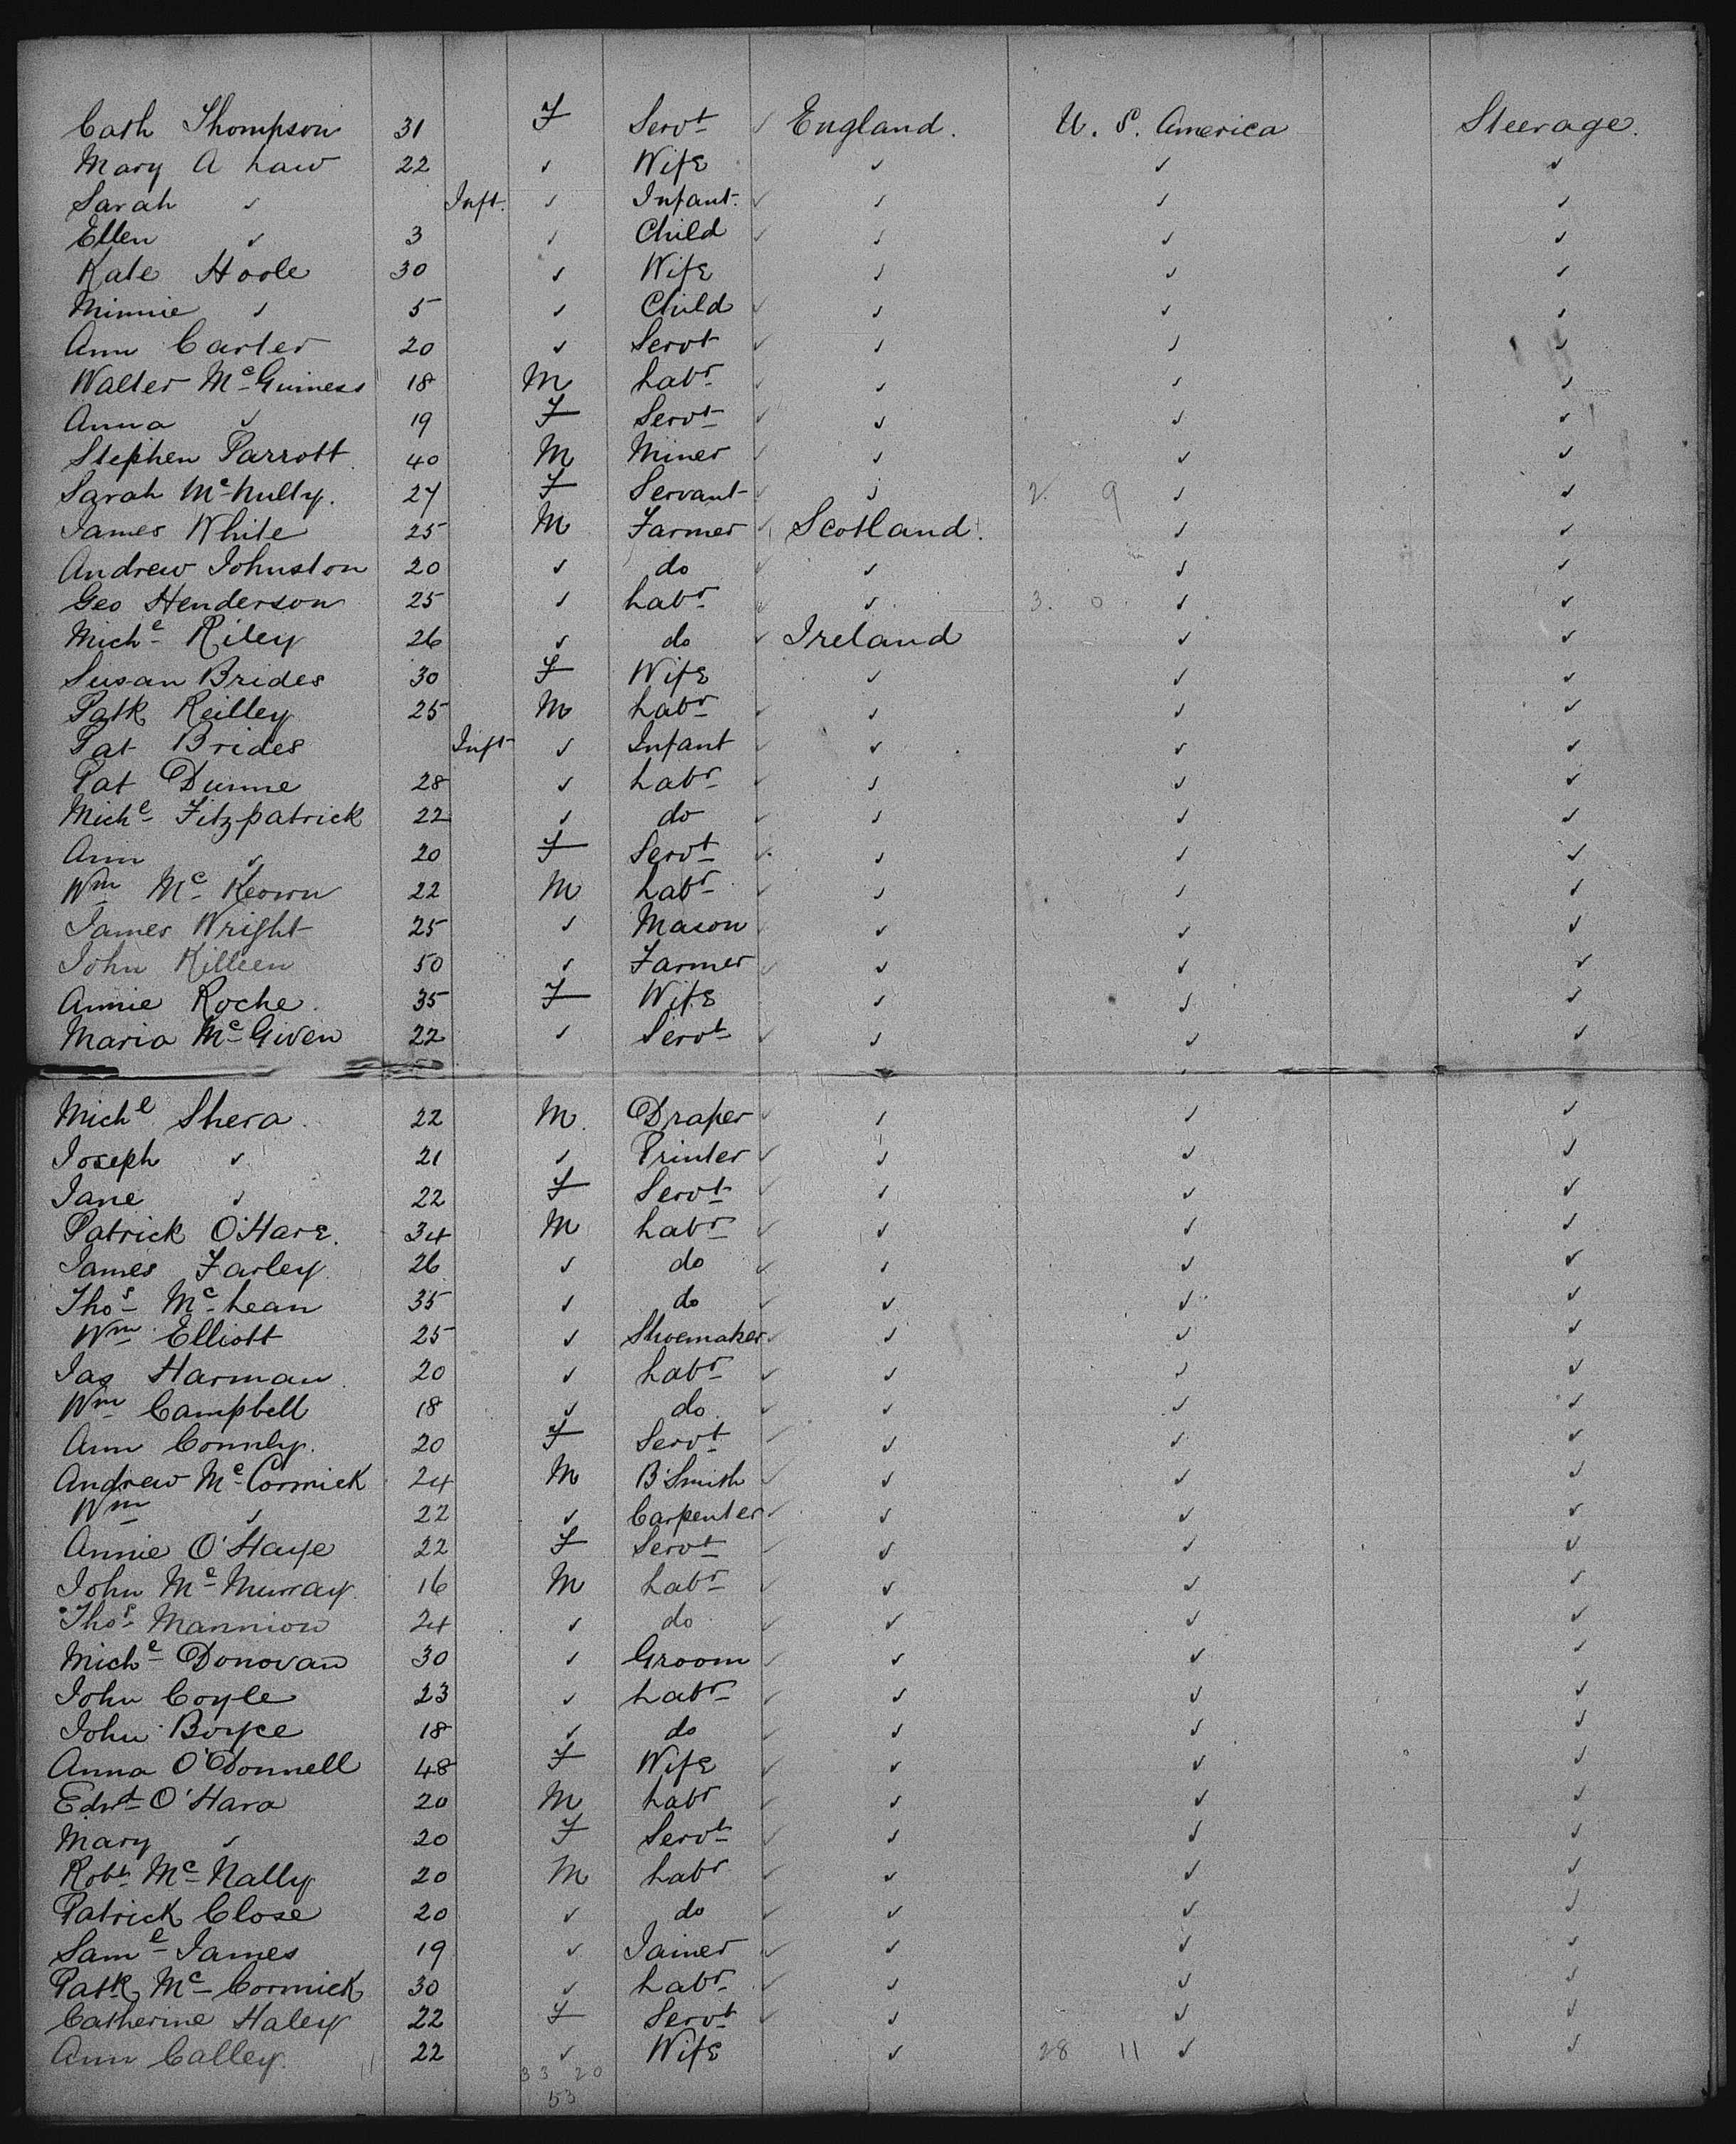 Cath Thompson 31 F Servt ✓ England. U. S. America Steerage.
Mary A Law 22 ✓ Wife ✓ ✓ ✓
Sarah ✓ Inft. ✓ Infant. ✓ ✓ ✓ ✓
Ellen ✓ 3 ✓ Child ✓ ✓ ✓ ✓
Kate Hoole 30 ✓ Wife ✓ ✓ ✓
Minnie ✓ 5 ✓ Child ✓ ✓ ✓ ✓
Ann Carter 20 ✓ Servt ✓ ✓ ✓ ✓
Walter Mc Guiness 18 M Labr ✓ ✓ ✓ ✓
Anna ✓ 19 F Servt ✓ ✓ ✓ ✓
Stephen Parrott 40 M Miner ✓ ✓ ✓ ✓
Sarah Mc Nulty. 27 F Servant ✓ ✓ 2. 9 ✓ ✓
James White 25 M Farmer ✓ Scotland. ✓ ✓
Andrew Johnston 20 ✓ do ✓ ✓ ✓ ✓
Geo Henderson 25 ✓ Labr ✓ ✓ 3. 0. ✓ ✓
Michl Riley 26 ✓ do ✓ Ireland ✓ ✓
Susan Brides 30 F Wife ✓ ✓ ✓
Patk Reilley 25 M Labr ✓ ✓ ✓ ✓
Pat Brides Inft ✓ Infant ✓ ✓ ✓ ✓
Pat Dunne 28 ✓ Labr ✓ ✓ ✓ ✓
Michl Fitzpatrick 22 ✓ do ✓ ✓ ✓ ✓
Ann ✓ 20 F Servt ✓ ✓ ✓ ✓
Wm Mc Keown 22 M Labr ✓ ✓ ✓ ✓
James Wright 25 ✓ Mason ✓ ✓ ✓ ✓
John Killeen 50 ✓ Farmer ✓ ✓ ✓ ✓
Annie Roche. 35 F Wife ✓ ✓ ✓
Maria Mc Given 22 ✓ Servt ✓ ✓ ✓ ✓
Michl Shera 22 M. Draper ✓ ✓ ✓ ✓
Joseph ✓ 21 ✓ Printer ✓ ✓ ✓ ✓
Jane ✓ 22 F Servt ✓ ✓ ✓ ✓
Patrick O'Hare. 34 M Labr ✓ ✓ ✓ ✓
James Farley 26 ✓ do ✓ ✓ ✓ ✓
Thos Mc Lean 35 ✓ do ✓ ✓ ✓ ✓
Wm Elliott 25 ✓ Shoemaker ✓ ✓ ✓ ✓
Jas Harman 20 ✓ Labr ✓ ✓ ✓ ✓
Wm Campbell 18 ✓ do ✓ ✓ ✓ ✓
Ann Connly. 20 F Servt ✓ ✓ ✓ ✓
Andrew Mc Cormick 24 M B'Smith ✓ ✓ ✓ ✓
Wm ✓ 22 ✓ Carpenter ✓ ✓ ✓ ✓
Annie 22 F Servt ✓ ✓ ✓ ✓
John Mc Murray 16 M Labr ✓ ✓ ✓ ✓
Thos Mannion 24 ✓ do ✓ ✓ ✓ ✓
Michl Donovan 30 ✓ Groom ✓ ✓ ✓ ✓
John Coyle 23 ✓ Labr ✓ ✓ ✓ ✓
John Boyce 18 ✓ do ✓ ✓ ✓ ✓
Anna O'Donnell 48 F Wife ✓ ✓ ✓ ✓
Edwd O'Hara 20 M Labr ✓ ✓ ✓ ✓
Mary ✓ 20 F Servt ✓ ✓ ✓ ✓
Robt Mc Nally 20 M Labr ✓ ✓ ✓ ✓
Patrick Close 20 ✓ do ✓ ✓ ✓ ✓
Saml James 19 ✓ Jainer ✓ ✓ ✓ ✓
Patk Mc Cormick 30 ✓ Labr ✓ ✓ ✓ ✓
Catherine Haley 22 F Servt ✓ ✓ ✓ ✓
Ann Calley. 22 ✓ Wife ✓ 28 11 ✓ ✓
33 20
53